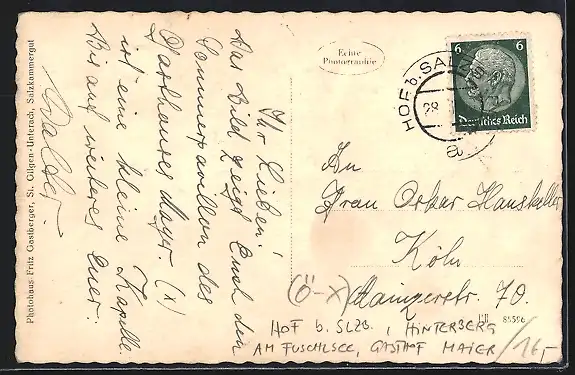 Photohaus Fritz Gastberger, St. Gilgen-Unterach, Salzkammergut
Ihr Lieben!
Das Bild zeigt Euch den
Sommerpavillon des
Gasthauses Mayer. (x)
ist eine kleine Kapelle.
Bis auf weiteres Euer:
Walder.
Echte
Photographie
6 6
Deutsches Reich
HOF b. SALZB
28
a
An
Frau Oskar Hanskeller
Köln
(Ö-X) Mainzerstr. 70.
HOF b. SLZB., HINTERBERG
AM FUSCHLSEE, GASTHOF MAIER /16,-